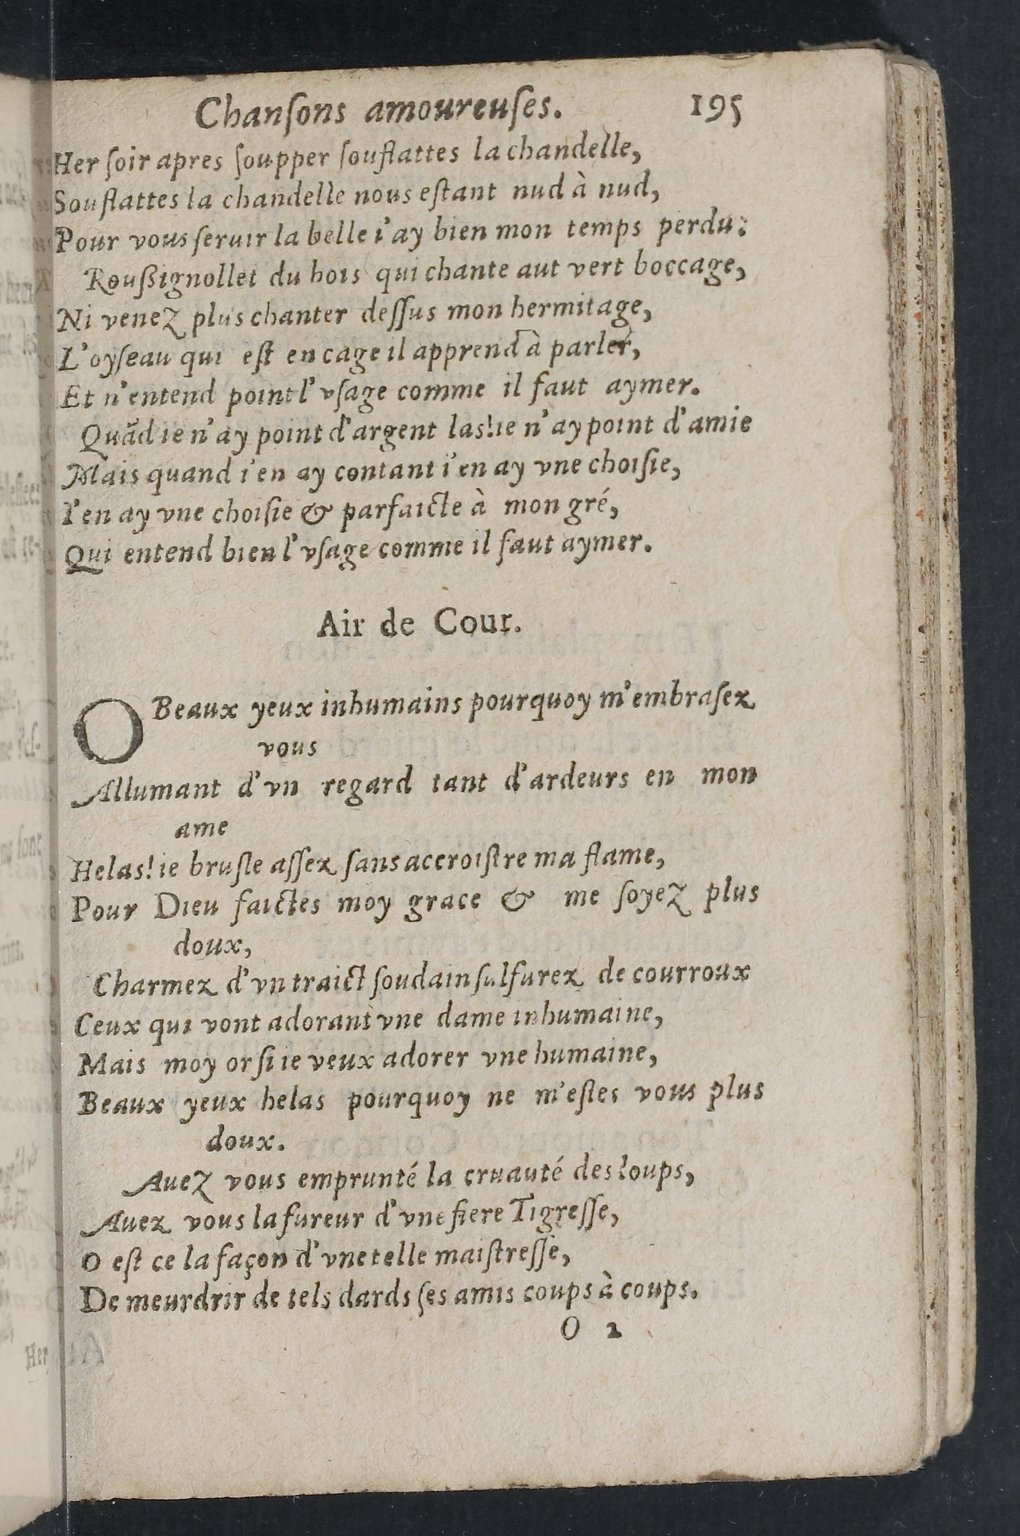 Chanſons amoureuſes. 195
Her ſoir apres ſoupper ſouflattes la chandelle,
Souflattes la chandelle nous eſtant nud à nud,
Pour vous ſeruir la belle i'ay bien mon temps perdu:
Rouſsignollet du bois qui chante aut vert boccage,
Ni venez plus chanter deſſus mon hermitage,
L'oyſeau qui eſt en cage il apprend à parler,
Et n'entend point l'vſage comme il faut aymer.
Quãd ie n'ay point d'argent las!ie n'ay point d'amie
Mais quand i'en ay contant i'en ay vne choiſie,
I'en ay vne choiſie & parfaicte à mon gré,
Qui entend bien l'vſage comme il faut aymer.
Air de Cour.
O Beaux yeux inhumains pourquoy m'embraſez
vous
Allumant d'vn regard tant d'ardeurs en mon
ame
Helas!ie bruſle aſſez ſans accroiſtre ma flame,
Pour Dieu faictes moy grace & me ſoyez plus
doux,
Charmez d'vn traict ſoudain ſulfurez de courroux
Ceux qui vont adorant vne dame inhumaine,
Mais moy or ſi ie veux adorer vne humaine,
Beaux yeux helas pourquoy ne m'eſtes vous plus
doux.
Auez vous emprunté la cruauté des loups,
Auez vous la fureur d'vne fiere Tigreſſe,
O eſt ce la façon d'vne telle maiſtreſſe,
De meurdrir de tels dards ſes amis coups à coups.
O 2
Her